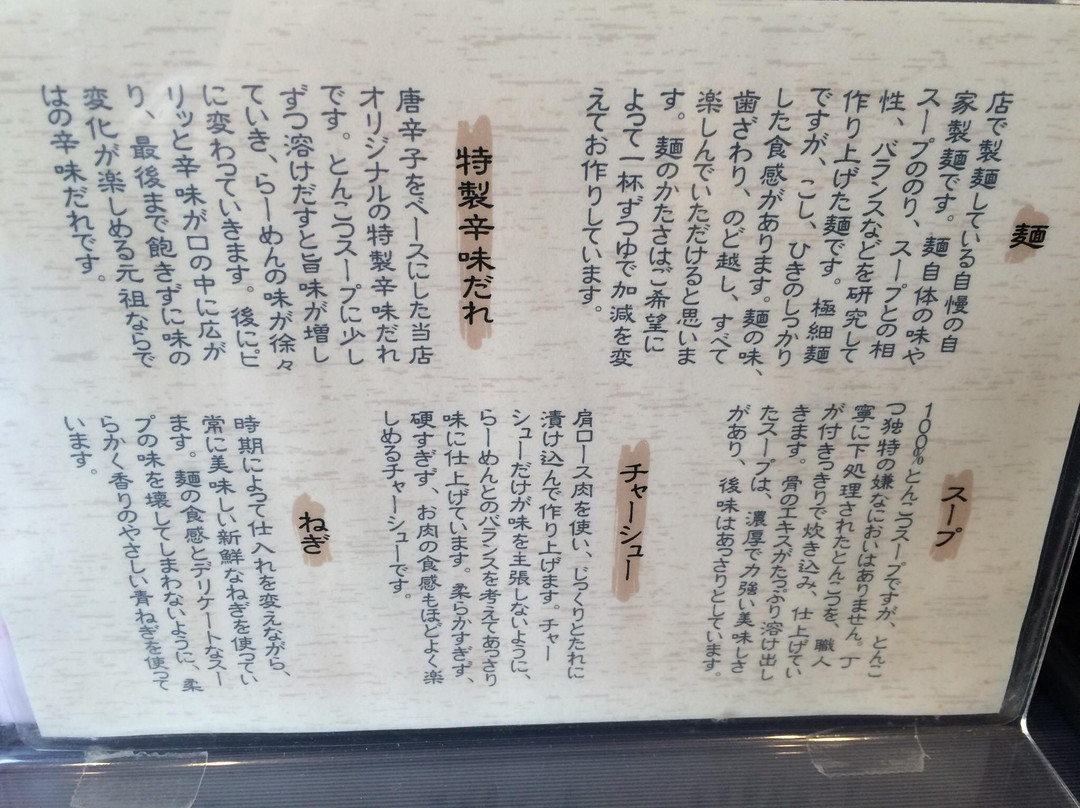 麺
店で製麺している自慢の自
家製麺です。麺自体の味や
スープののり、スープとの相
性、バランスなどを研究して
作り上げた麺です。極細麺
ですが、こし、ひきのしっかり
した食感があります。麺の味、
歯ざわり、のど越し、すべて
楽しんでいただけると思いま
す。麺のかたさはご希望に
よって一杯ずつゆで加減を変
えてお作りしています。
特製辛味だれ
唐辛子をベースにした当店
オリジナルの特製辛味だれ
です。とんこつスープに少し
ずつ溶けだすと旨味が増し
ていき、らーめんの味が徐々
に変わっていきます。後にピ
リッと辛味が口の中に広が
り、最後まで飽きずに味の
変化が楽しめる元祖ならで
はの辛味だれです。
スープ
100%とんこつスープですが、とんこ
つ独特の嫌なにおいはありません。丁
寧に下処理されたとんこつを、職人
が付きっきりで炊き込み、仕上げてい
きます。骨のエキスがたっぷり溶け出し
たスープは、濃厚で力強い美味しさ
があり、後味はあっさりとしています。
チャーシュー
肩ロース肉を使い、じっくりとたれに
漬け込んで作り上げます。チャー
シューだけが味を主張しないように、
らーめんとのバランスを考えてあっさり
味に仕上げています。柔らかすぎず、
硬すぎず、お肉の食感もほどよく楽
しめるチャーシューです。
ねぎ
時期によって仕入れを変えながら、
常に美味しい新鮮なねぎを使ってい
ます。麺の食感とデリケートなスー
プの味を壊してしまわないように、柔
らかく香りのやさしい青ねぎを使って
います。